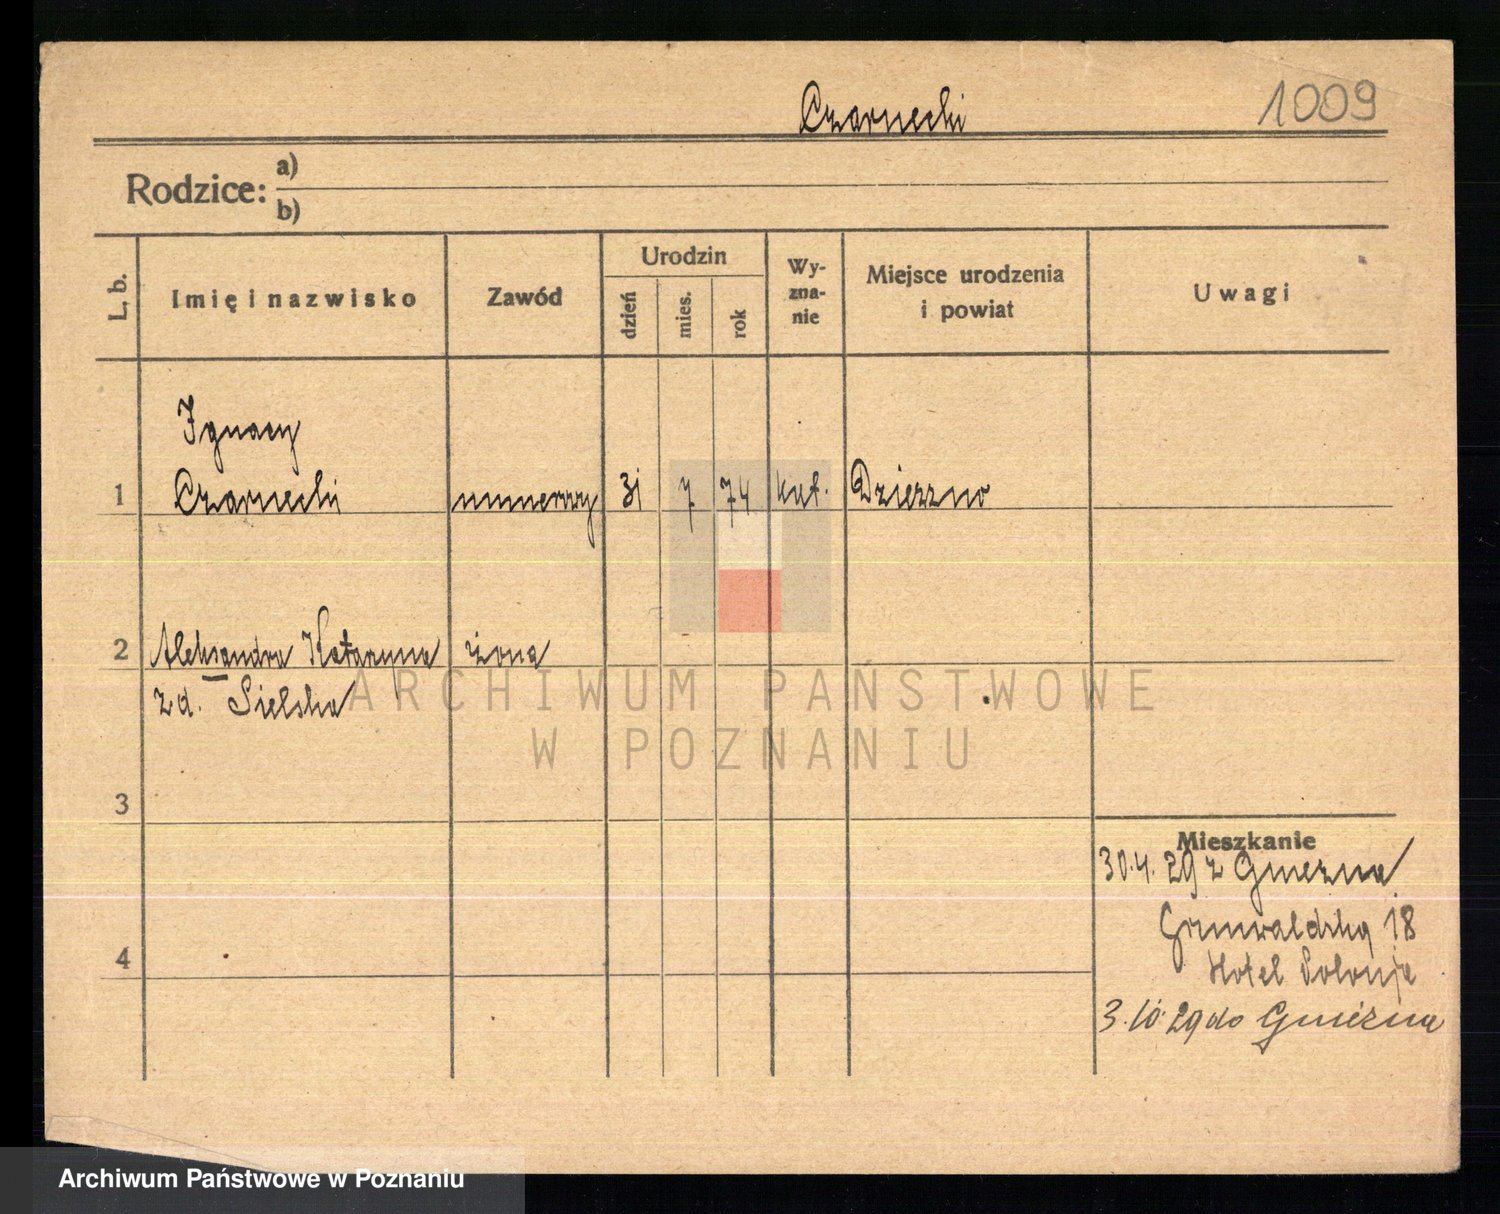 Czarnecki
1009
Rodzice: a)
b)
L. b.
Imię i nazwisko
Zawód
Urodzin
dzień
mies.
rok
Wy-
zna-
nie
Miejsce urodzenia
i powiat
Uwagi
Ignacy
1 Czarnecki 31 7 74 kat. Dzierzno
2 Aleksandra Katarzyna żona
zd. Sielska
3
4
Mieszkanie
30.4. 29 z Gniezna
Grunwaldzka 18
Hotel Polonja
3. 10. 29 do Gniezna
ARCHIWUM PAŃSTWOWE
W POZNANIU
Archiwum Państwowe w Poznaniu